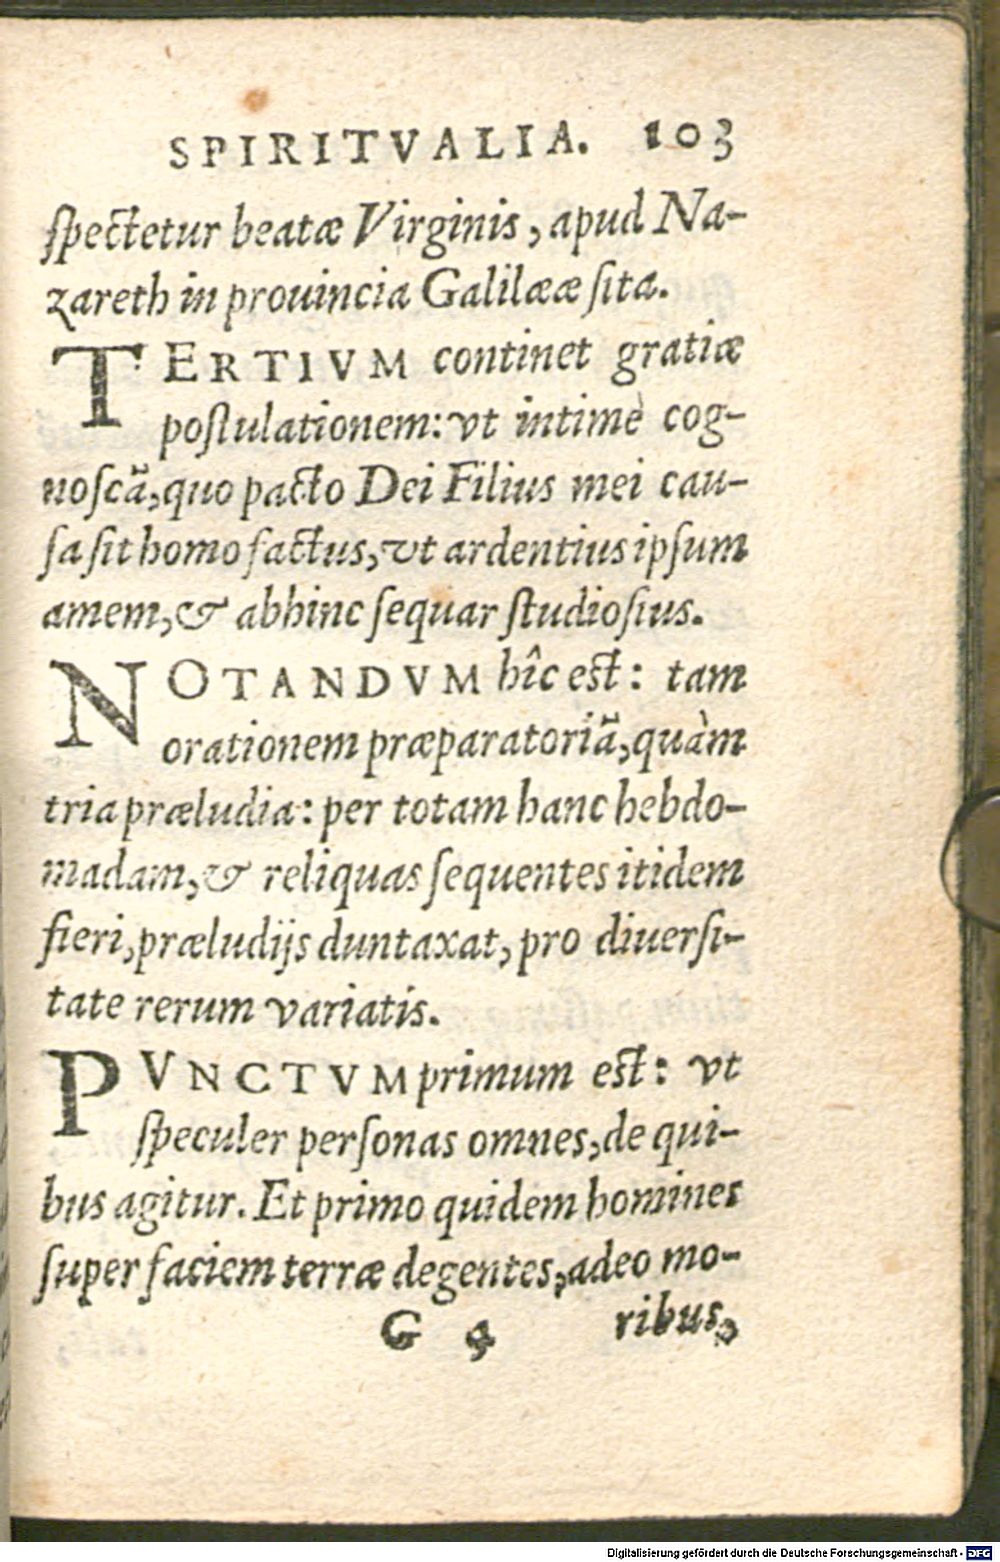 SPIRITVALIA. 103
ſpectetur beatæ Virginis, apud Na-
zareth in prouincia Galilææ ſita.
TERTIVM continet gratiæ
poſtulationem: vt intimè cog-
noſcã, quo pacto Dei Filius mei cau-
ſa ſit homo factus, vt ardentius ipſum
amem, & abhinc ſequar ſtudioſius.
NOTANDVM hîc est: tam
orationem præparatoriã, quàm
tria præludia: per totam hanc hebdo-
madam, & reliquas ſequentes itidem
fieri, præludijs duntaxat, pro diuerſi-
tate rerum variatis.
PVNCTVM primum est: vt
ſpeculer perſonas omnes, de qui-
bus agitur. Et primo quidem homines
ſuper faciem terræ degentes, adeo mo-
G ribus,
Digitalisierung gefördert durch die Deutsche Forschungsgemeinschaft - DFG